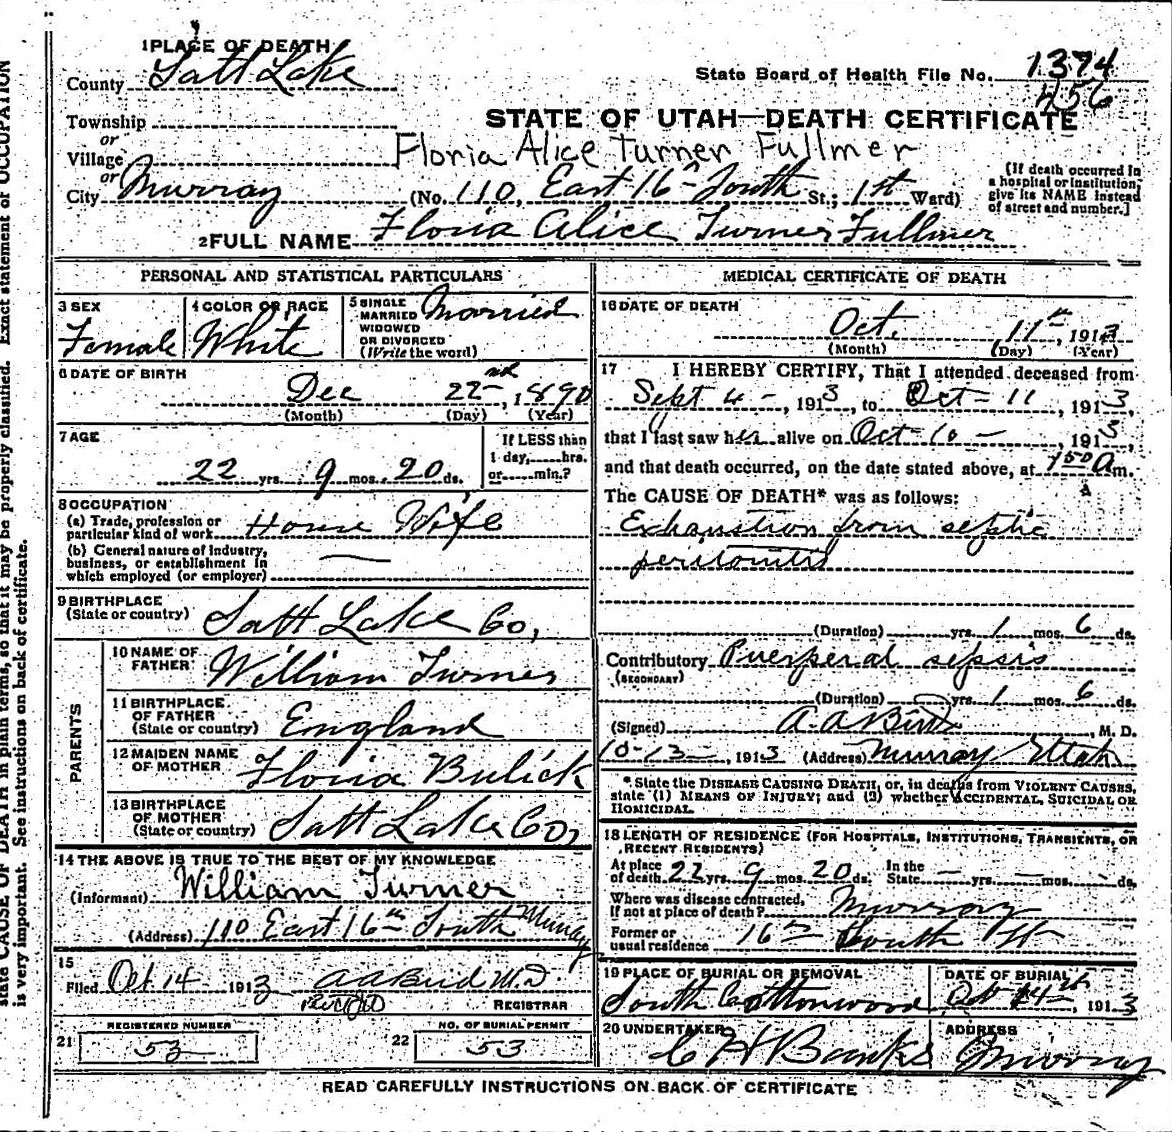 1 PLACE OF DEATH
County Salt Lake
State Board of Health File No. 1394
456
STATE OF UTAH—DEATH CERTIFICATE
Township
or
Village
or
Floria Alice Turner Fullmer
City Murray (No. 110, East 16th South St.; 1st Ward)
(If death occurred in
a hospital or institution,
give its NAME instead
of street and number.]
2 FULL NAME Floria Alice Turner Fullmer
PERSONAL AND STATISTICAL PARTICULARS
3 SEX
Female
4 COLOR OR RACE
White
5 SINGLE
MARRIED
WIDOWED
OR DIVORCED
(Write the word)
Married
6 DATE OF BIRTH
Dec 22nd, 1890
(Month) (Day) (Year)
7 AGE
22 yrs. 9 mos. 20 ds.
If LESS than
1 day,......hrs.
or......min.?
8 OCCUPATION
(a) Trade, profession or
particular kind of work House Wife
(b) General nature of industry,
business, or establishment in
which employed (or employer)
9 BIRTHPLACE
(State or country) Salt Lake Co,
PARENTS
10 NAME OF
FATHER William Turner
11 BIRTHPLACE
OF FATHER
(State or country) England
12 MAIDEN NAME
OF MOTHER Floria Bulick
13 BIRTHPLACE
OF MOTHER
(State or country) Salt Lake Co,
14 THE ABOVE IS TRUE TO THE BEST OF MY KNOWLEDGE
(Informant) William Turner
(Address) 110 East 16th South Murray
15
Filed Oct 14 1913 A A Bird M.D
REGISTRAR
REGISTERED NUMBER
21 53
NO. OF BURIAL PERMIT
22 53
MEDICAL CERTIFICATE OF DEATH
16 DATE OF DEATH
Oct. 11th, 1913
(Month) (Day) (Year)
17 I HEREBY CERTIFY, That I attended deceased from
Sept 4 -, 1913, to Oct - 11, 1913,
that I last saw her alive on Oct - 10 -, 1913,
and that death occurred, on the date stated above, at 1 50 A m.
The CAUSE OF DEATH* was as follows:
Exhaustion from septic
peritonitis
(Duration) yrs. 1 mos. 6 ds.
Contributory Puerperal sepsis
(SECONDARY)
(Duration) yrs. 1 mos. 6 ds.
(Signed) A. A Bird, M. D.
10-13-, 1913 (Address) Murray Utah
*State the DISEASE CAUSING DEATH, or, in deaths from VIOLENT CAUSES,
state (1) MEANS OF INJURY; and (2) whether ACCIDENTAL, SUICIDAL OR
HOMICIDAL.
18 LENGTH OF RESIDENCE (FOR HOSPITALS, INSTITUTIONS, TRANSIENTS, OR
RECENT RESIDENTS)
At place
of death 22 yrs. 9 mos. 20 ds.
In the
State — yrs. — mos. — ds.
Where was disease contracted,
if not at place of death? Murray
Former or
usual residence 16th South St
19 PLACE OF BURIAL OR REMOVAL
South Cottonwood
DATE OF BURIAL
Oct 14th, 1913
20 UNDERTAKER
C H Banks
ADDRESS
Murray
READ CAREFULLY INSTRUCTIONS ON BACK OF CERTIFICATE
state CAUSE OF DEATH in plain terms, so that it may be properly classified. Exact statement of OCCUPATION
is very important. See instructions on back of certificate.